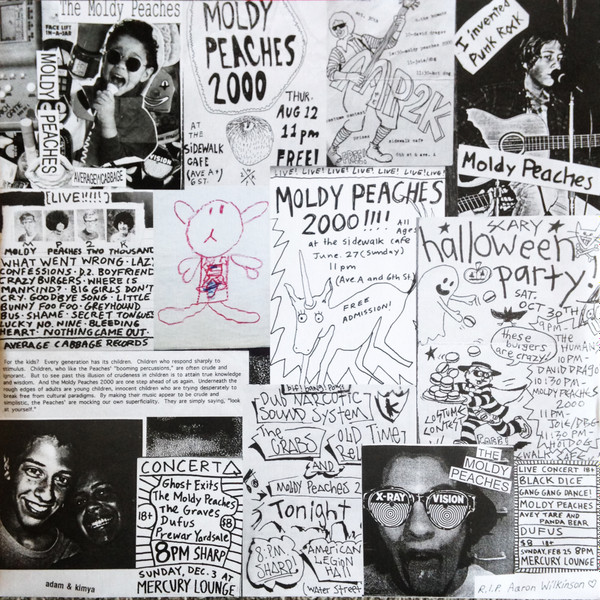 The Moldy Peaches
FACE LIFT
IN-A-JAR
MOLDY PEACHES
VISION
AVERAGE CABBAGE
MOLDY
PEACHES
2000
THUR.
AUG 12
11 pm
FREE!
AT
THE
SIDEWALK
CAFE
(AVE A +
6 ST.
AAP2K
sidewalk cafe
6th st & ave. A
I invented
Punk Rock
Moldy Peaches
LIVE! LIVE! LIVE! LIVE! LIVE! LIVE!
[LIVE!!!!]
MOLDY PEACHES TWO THOUSAND
WHAT WENT WRONG · LAZY
CONFESSIONS · D.2. BOYFRIEND
CRAZY BURGERS · WHERE IS
MANKIND? · BIG GIRLS DON'T
CRY · GOODBYE SONG · LITTLE
BUNNY FOO FOO · GREYHOUND
BUS · SHAME · SECRET TONGUES
LUCKY NO. NINE · BLEEDING
HEART · NOTHING CAME OUT ·
AVERAGE CABBAGE RECORDS
MOLDY PEACHES
2000!!!!
All
Ages
at the sidewalk cafe
June 27 (Sunday)
11 pm
(Ave A and 6th St.)
FREE
ADMISSION!
SCARY
halloween
party!
SAT.
OCT 30TH
9PM-
THE
HUMAN
10PM-
DAVID DRAGO
10:30PM-
MOLDY PEACHES
2000
11PM-
JOIE/DBG
11:30PM-
these
burgers
are crazy!
COSTUME
CONTEST
ROBBLE
SIDEWALK CAFE
For the kids? Every generation has its children. Children who respond sharply to
stimulus. Children, who like the Peaches' "booming percussions," are often crude and
ignorant. But to see past this illusion of crudeness in children is to attain true knowledge
and wisdom. And the Moldy Peaches 2000 are one step ahead of us again. Underneath the
rough edges of adults are young children, innocent children who are trying desperately to
break free from cultural paradigms. By making their music appear to be crude and
simplistic, the Peaches' are mocking our own superficiality. They are simply saying, "look
at yourself."
adam & kimya
CONCERT
Ghost Exits
The Moldy Peaches
The Graves
Dufus
Prewar Yardsale
18+
$8
8PM SHARP
SUNDAY, DEC. 3 AT
MERCURY LOUNGE
DUB NARCOTIC
SOUND SYSTEM
the CRABS
OLD TIME
AND
MOLDY PEACHES 2
Tonight
8:PM
SHARP!
American
Legion
HALL
(water Street
X-RAY VISION
THE MOLDY
PEACHES
LIVE CONCERT 18+
BLACK DICE
GANG GANG DANCE!
MOLDY PEACHES
AVEY TARE AND
PANDA BEAR
DUFUS
$8 18+
SUNDAY, FEB 25 8PM
MERCURY LOUNGE
R.I.P. Aaron Wilkinson ♡